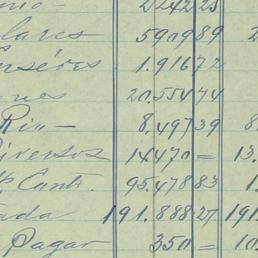 2242 25
lares 5909 89
nséres 1.916 72
ques 20.554 74
Rio — 8.497 39 8
Diversos 14470 = 13.
Cont. 95.478 83 1
tada 191.888 27 191
Pagar 350 = 10